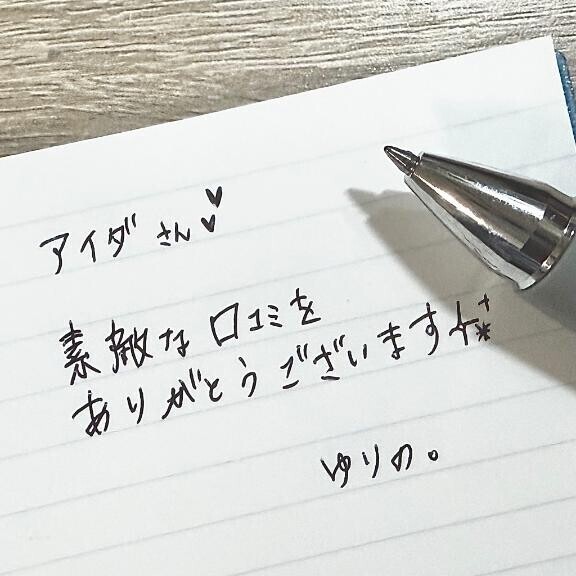 アイダさん♥♥
素敵な口コミを
ありがとうございます
ゆりの。